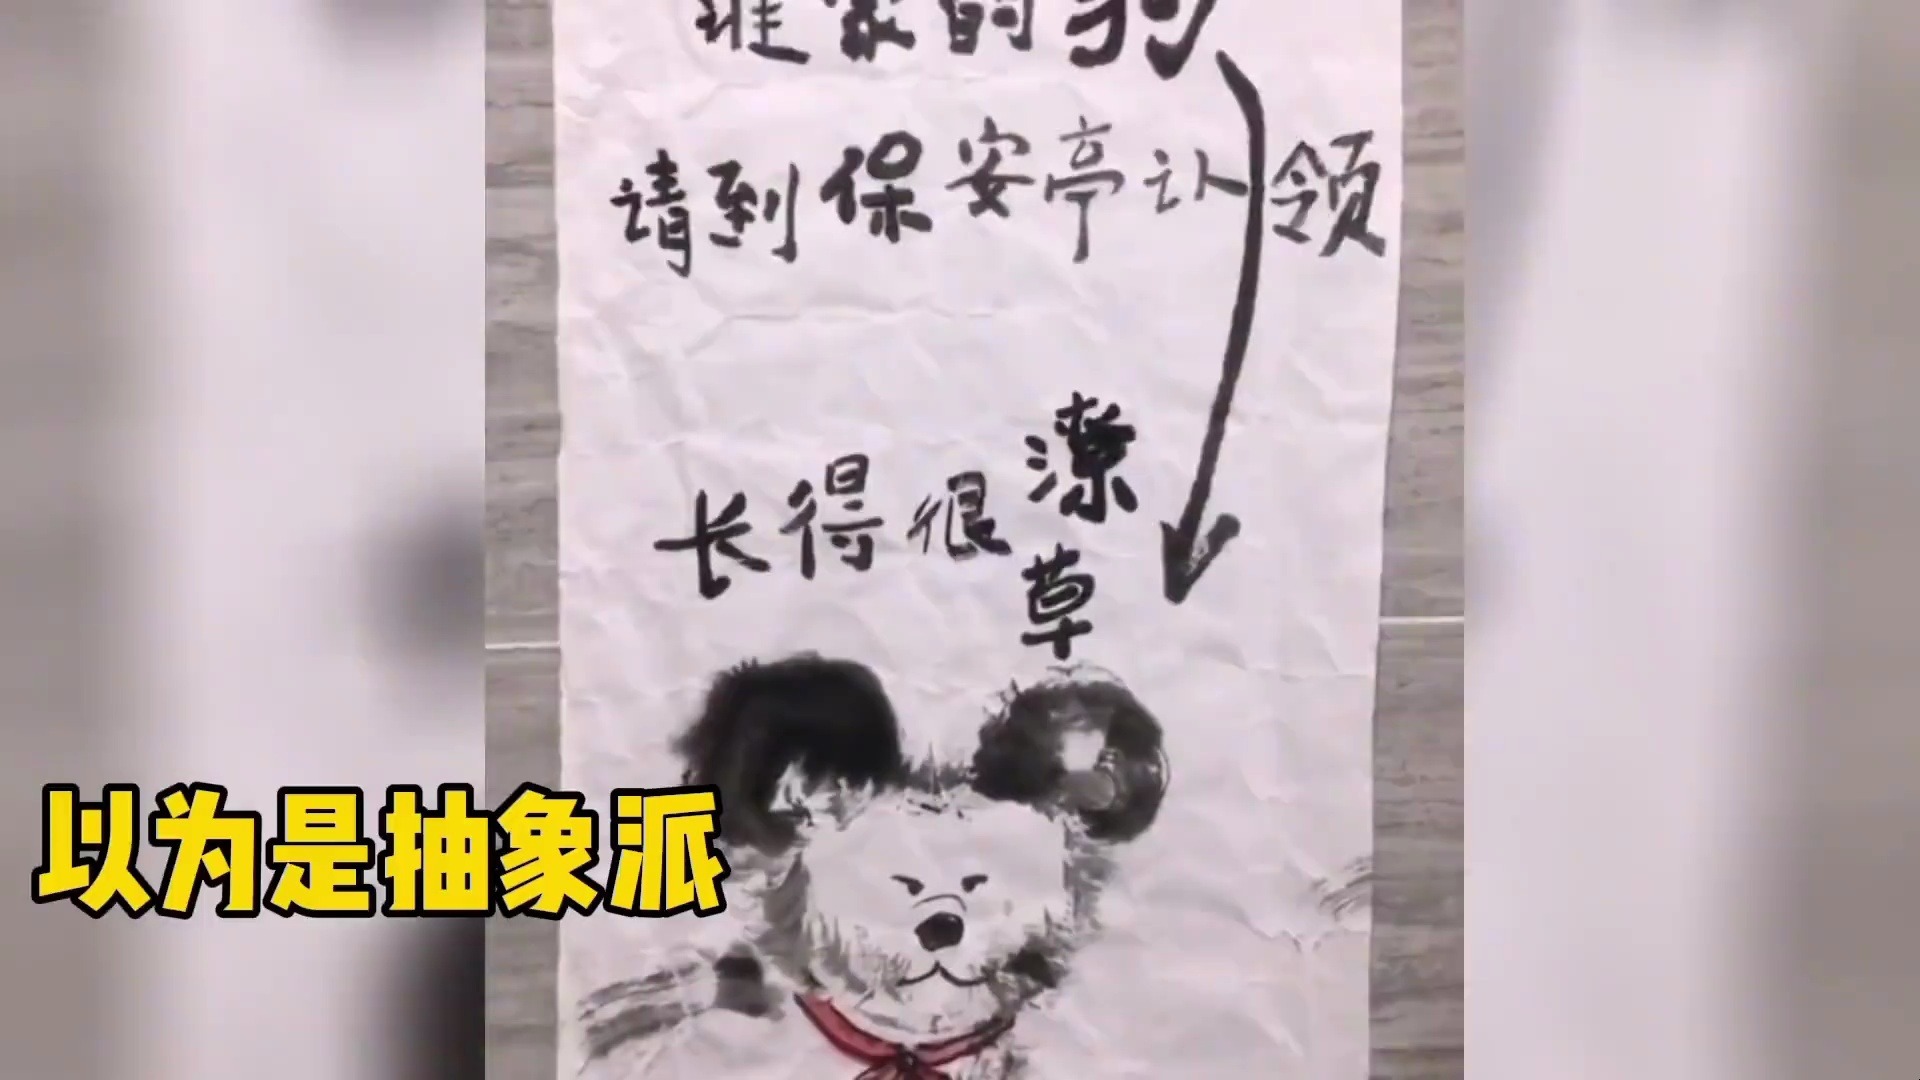 谁家的狗
请到保安亭认领
长得很潦草
以为是抽象派